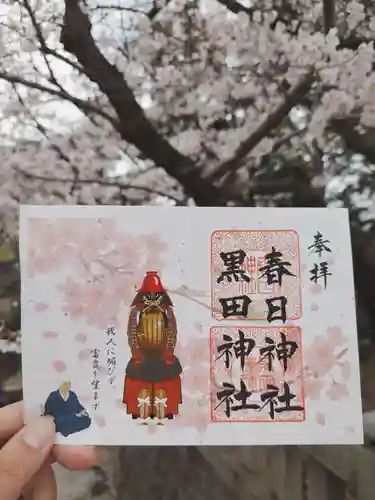 奉拝
春日神社
黒田神社
我、人に媚びず
富貴を望まず